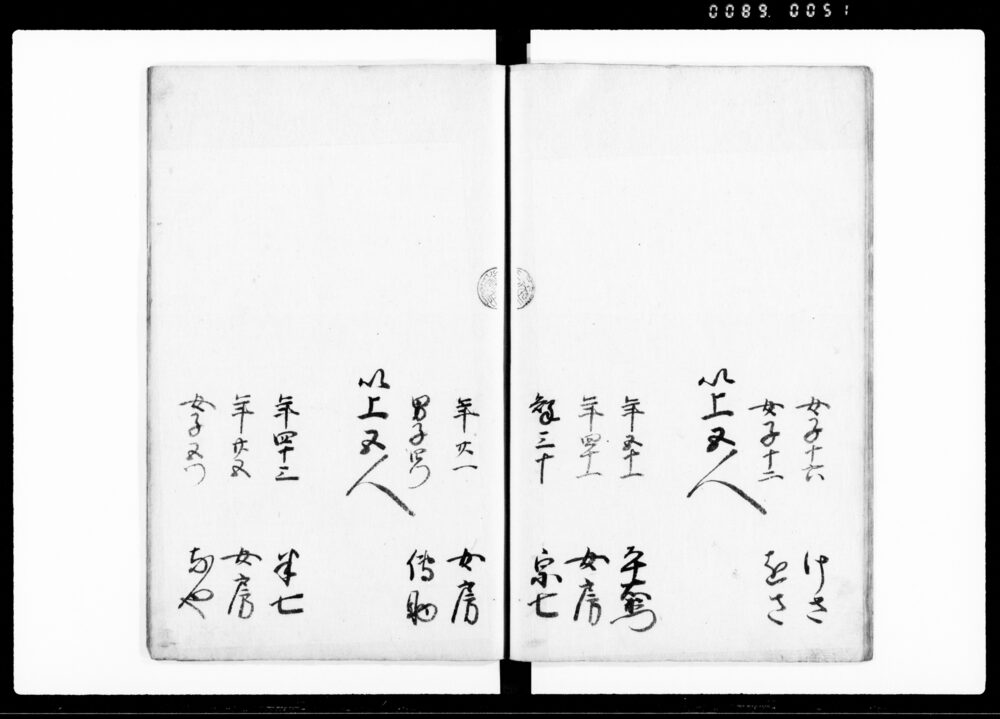 0089 0051
女子十六 けさ
女子十二
以上五人
年五十一
年四十一 女房
聟三十 宗七
年廿一 女房
男子四つ 傳助
以上五人
年四十三 半七
年廿五 女房
女子五つ